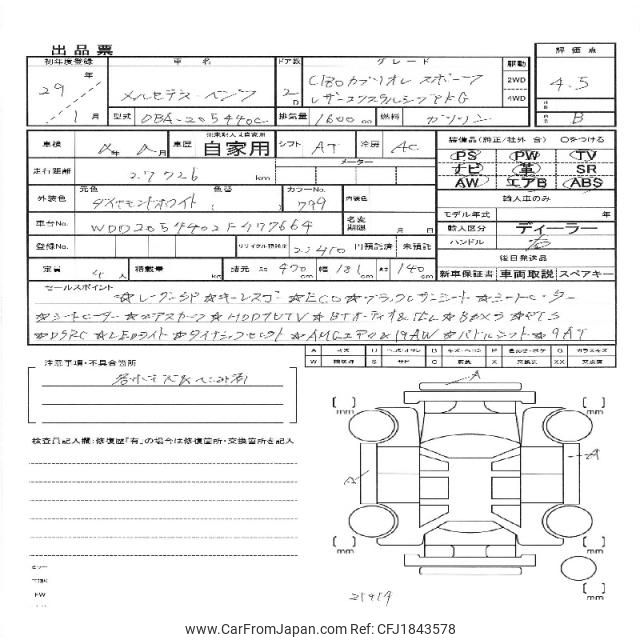 出品票
初年度登録 車名 ドア数 グレード 駆動 評価点
29 年 メルセデス・ベンツ 2 D C180カブリオレ スポーツ 2WD 4.5
レザーエクスクルーシブPKG 4WD
1 月 型式 DBA-205440C 排気量 1600 cc 燃料 ガソリン B
車検 年 月 車歴 自家用 シフト AT 冷房 AC 装備品(純正/社外 含) ○をつける
走行距離 27726 km メーター PS PW TV
ナビ 革 SR
AW エアB ABS
外装色 元色 ダイヤモンドホワイト 色替 ( ) カラーNo. 799 内装色
輸入車のみ
モデル年式 年
車台No. WDD2054402F477664 名変期限 月 日 輸入区分 ディーラー
ハンドル 右
登録No. リサイクル預託金 円預託済 未預託
後日発送品
定員 4 人 積載量 kg 諸元 長さ 470 cm 幅 181 cm 高さ 140 cm 新車保証書 車両取説 スペアキー
セールスポイント
☆レーダーSP☆キーレスゴー☆ECO☆ブラックレザーシート☆シートヒーター
☆シートヒーター☆エアスカーフ☆HDDナビTV☆BTオーディオ&TEL☆Bカメラ☆PTS
☆DSRC☆LEDライト☆ダイナミックセレクト☆AMGエアロ&19AW☆パドルシフト☆9AT
注意事項・不具合箇所
検査員記入欄:修復歴「有」の場合は修復箇所・交換箇所を記入
A
[ ] mm [ ] mm
A A
[ ] mm [ ] mm
www.CarFromJapan.com Ref:CFJ1843578